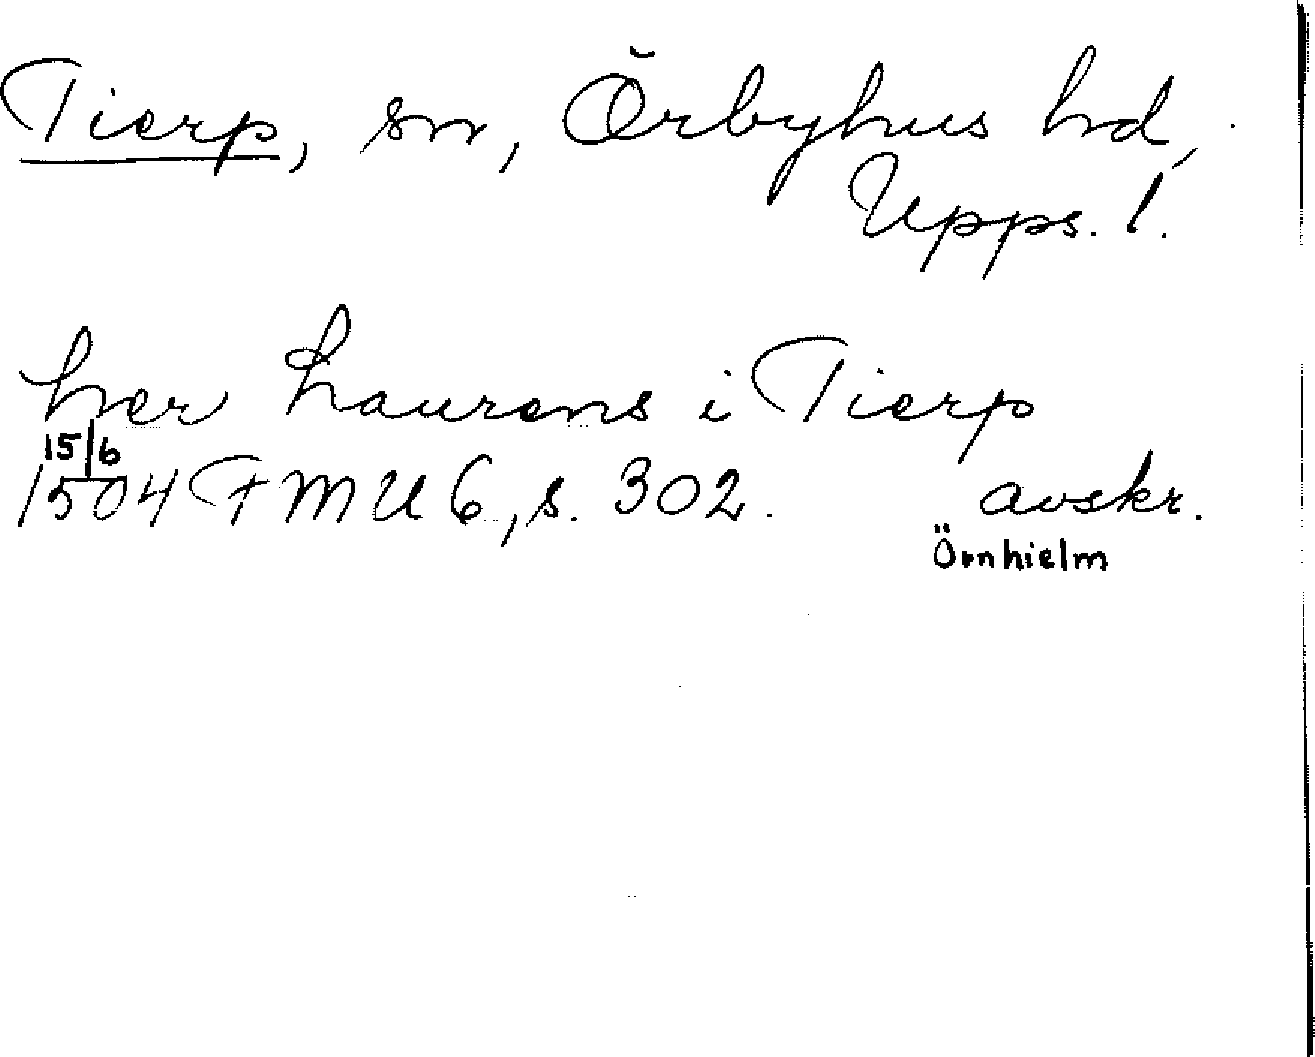 Tierp, sn, Örbyhus hd,
Upps. l.
her Laurens i Tierp
15/6
1504 FMU 6, s. 302. avskr.
Örnhielm